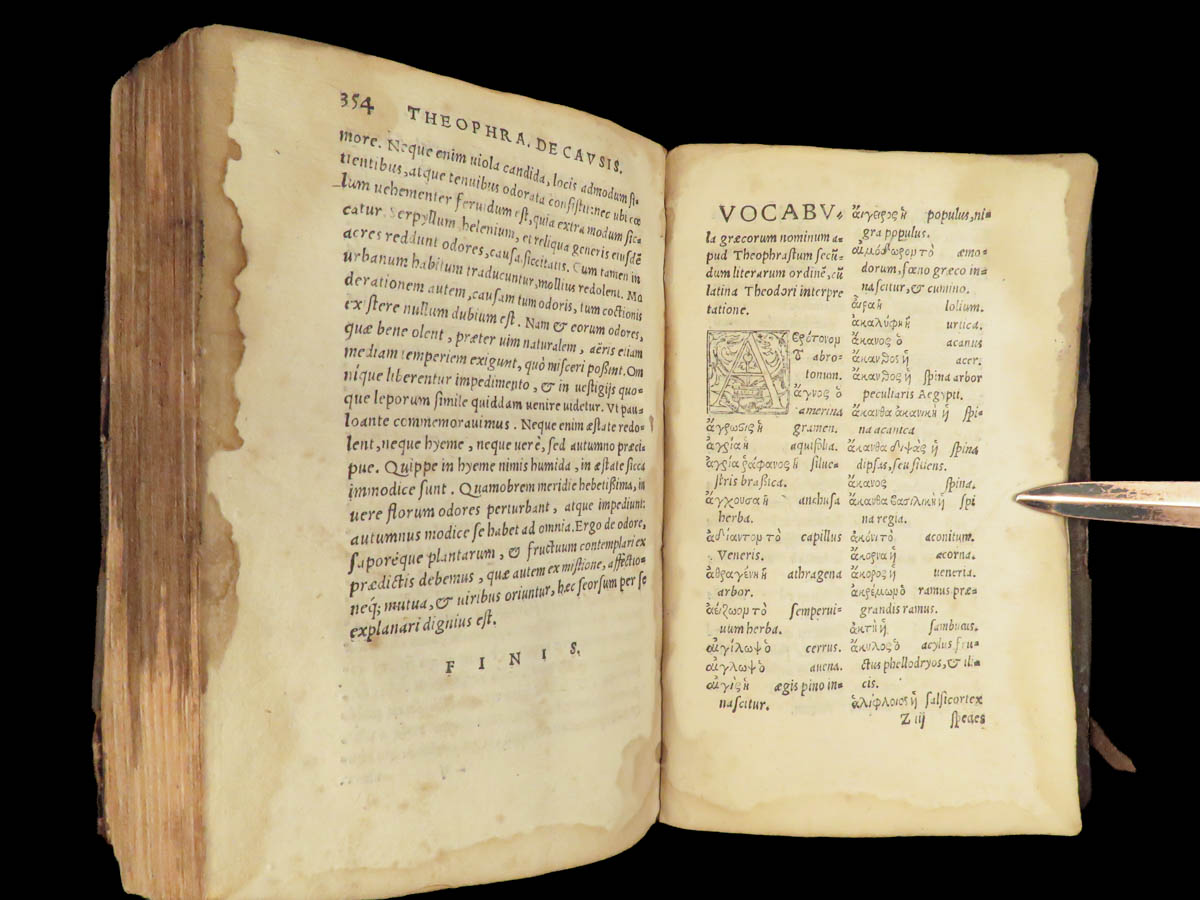 354 THEOPHRA. DE CAVSIS.
more. Neque enim uiola candida, locis admodum si-
tientibus, atque tenuibus odorata consistit: nec ubi cœ
lum uehementer feruidum est, quia extra modum sic-
catur. Serpyllum helenium, et reliqua generis eiusdē
acres reddunt odores, causa siccitatis. Cum tamen in
urbanum habitum traducuntur, mollius redolent. Mo
derationem autem, causam tum odoris, tum coctionis
existere nullum dubium est. Nam & eorum odores,
quæ bene olent, præter uim naturalem, aëris etiam
mediam temperiem exigunt, quò misceri poßint. Om
nique liberentur impedimento, & in uestigijs quo-
que leporum simile quiddam uenire uidetur. Vt pau-
lo ante commemorauimus. Neque enim æstate redo-
lent, neque hyeme, neque uerè, sed autumno præci-
pue. Quippe in hyeme nimis humida, in æstate sicca
immodice sunt. Quamobrem meridie hebetißima, in
uere florum odores perturbant, atque impediunt:
autumnus modice se habet ad omnia. Ergo de odore,
saporéque plantarum, & fructuum contemplari ex
prædictis debemus, quæ autem ex mistione, affectio-
neq; mutua, & uiribus oriuntur, hæc seorsum per se
explanari dignius est.
FINIS.
VOCABV-
la græcorum nominum a-
pud Theophrastum secū-
dum literarum ordinē, cū
latina Theodori interpre
tatione.
A
Βρότονομ
τ abro-
tonum.
ἄγνος ὁ
amerina
ἄγρωσις ἡ gramen.
ἀγρία ἡ aquifolia.
ἀγρία ῥάφανος ἡ silue-
stris braßica.
ἄγχουσα ἡ anchusa
herba.
ἀδίαντομ τὸ capillus
Veneris.
ἀθραγένη ἡ athragena
arbor.
ἀείζωομ τὸ semperui-
uum herba.
αἰγίλωψ ὁ cerrus.
αἰγλωψ ὁ auena.
αἰγὶς ἡ ægis pino in-
nascitur.
ἄιγειρος ἡ populus, ni-
gra populus.
αἱμόδωρομ τὸ æmo-
dorum, fœno græco in-
nascitur, & cumino.
αἶρα ἡ lolium.
ἀκαλύφη ἡ urtica.
ἄκανος ὁ acanus
ἄκανθος ἡ acer.
ἄκανθος ἡ spina arbor
peculiaris Aegypti.
ἄκανθα ἀκανικὴ ἡ spi-
na acanica
ἄκανθα διψὰς ἡ spina
dipsas, seu sitiens.
ἄκανος spina.
ἄκανθα βασιλικὴ ἡ spi
na regia.
ἀκόνιτὸ aconitum.
ἄκορνα ἡ acorna.
ἄκορος ἡ ueneria.
ἀκρέμωμ ὁ ramus præ-
grandis ramus.
ἀκτὴ ἡ sambucus.
ἄκυλος ὁ acylus fru-
ctus phellodryos, & ili-
cis.
ἁλίφλοιος ἡ salsicortex
Z iij species